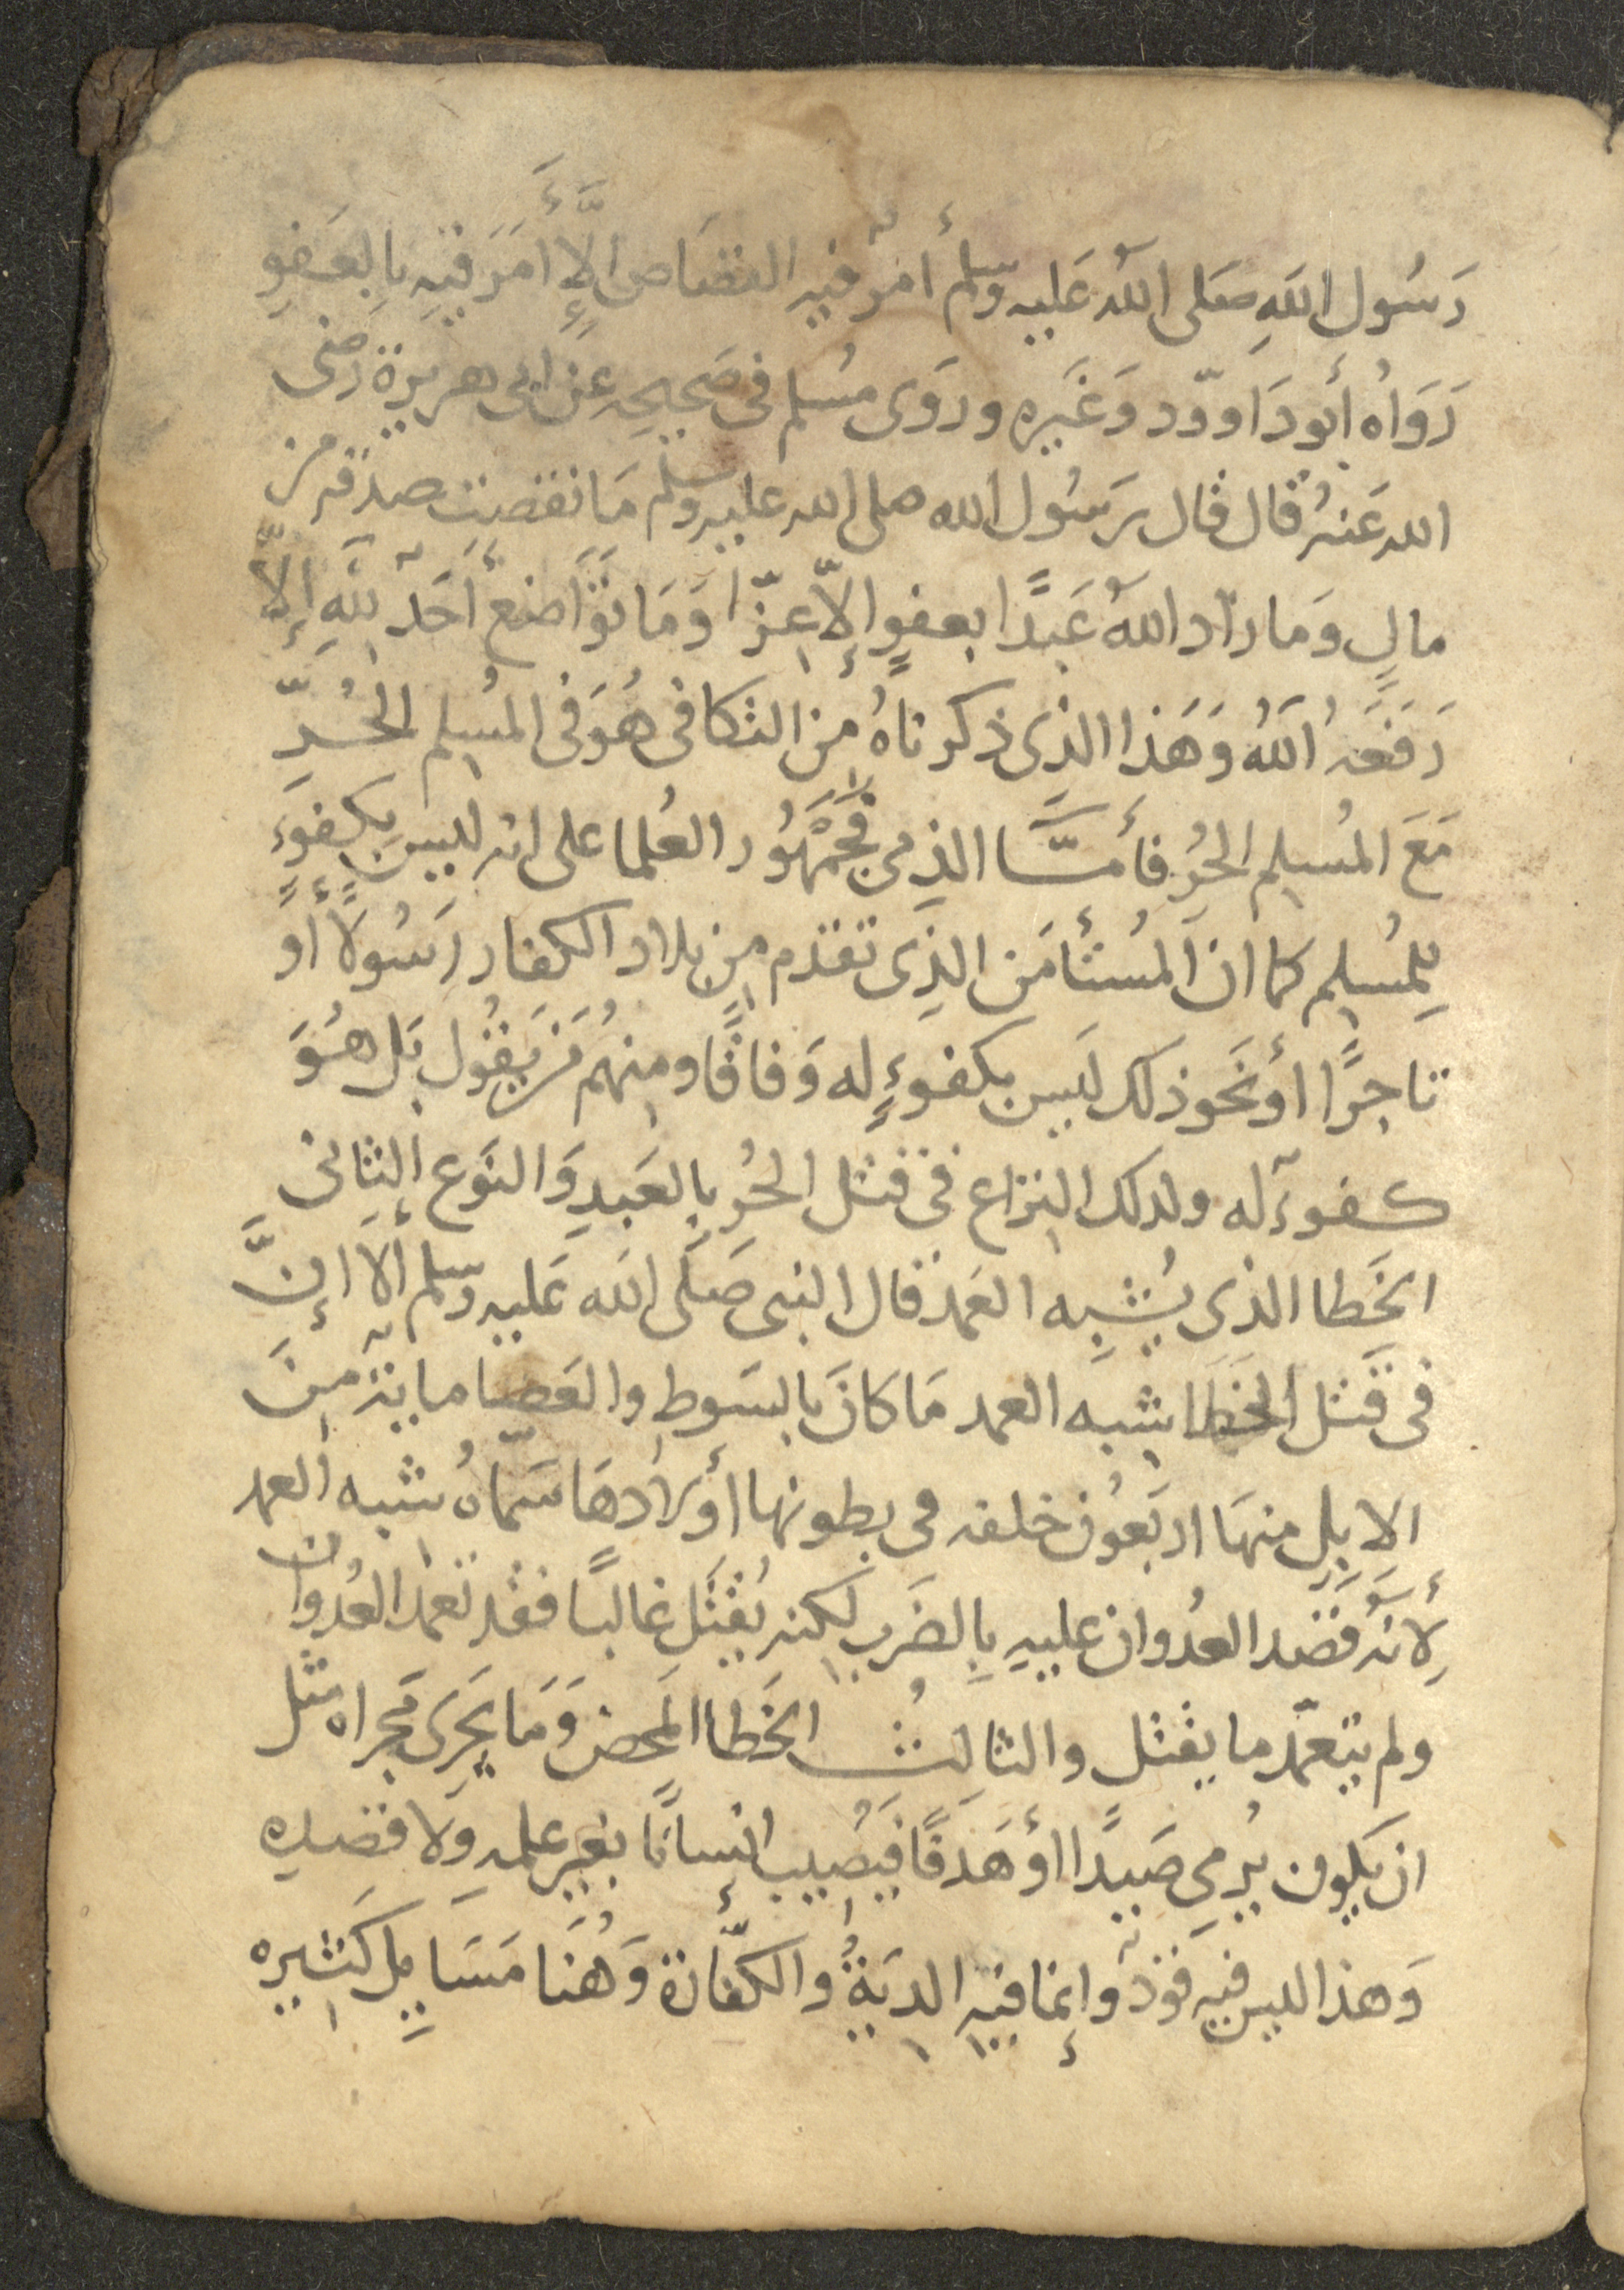 رَسُول اللهِ صَلى اللهُ عَليه وسلم أمرٌ فيه القصَاص إلَّا أَمَرَ فيهِ بِالعَفوِ
رَوَاهُ أبو دَاوود وَغَيره وروَى مسُلم فى صَحيحِه عن ابى هريرة رضى
الله عَنهُ قال قال رسُول الله صلى الله عليه وسلم مَا نقصت صدقه من
مالٍ وَما زاد اللهُ عَبدًا بعفوٍ إلّا عِزّا وَمَا تَوَاضع أحَدٌ للهِ إلّا
رَفَعَهُ اللهُ وَهَذا الذِى ذكرناهُ من التكافى هُوَ فى المُسِلم الحُرِّ
مَعَ المُسِلم الحُرِ فأمَّا الذمى فَجُمْهُور العُلما على انه ليسَ بِكفوءٍ
لِلمُسِلم كما ان المُستأمَن الذِى تقدم من بلاد الكفار رسُولاً أو
تاجرًا أو نَحو ذلك ليَس بكفوءٍ له وَفاقًا ومنهُم مَن يَقُول بَل هُوَ
كفوءٌ له ولذلك النزاع فى قتل الحُرِ بِالعَبدِ وَالنَوع الثانى
الخَطا الذى يُشبِه العَمد قال النبى صَلَى الله عَليه وسلم ألَا إنَّ
فى قَتل الخَطَا شبه العمد مَا كانَ بالسَوطِ والعَصا مايةٌ مِنَ
الابِلِ منهَا اربَعُون خلفه فى بطونها أولادهَا سَمّاهُ شبه العمد
لِأنهُ قصَد العدُوان عليهِ بِالضَربِ لكنه يُقتَل غالبًا فقد تعمد العُدوان
ولم يتعَمّد ما يقتل والثالِثُ الخَطا المَحض وَمَا يَجرِى مَجراه مثل
ان يكون يُرمى صَيدًا أو هَدفًا فيَصُيب إنسانًا بغير علمهِ ولا قصدِه
وَهذا ليس فيه قَودٌ وإنما فيه الديَةُ والكفّارة وَهُنَا مسَايل كَثيره